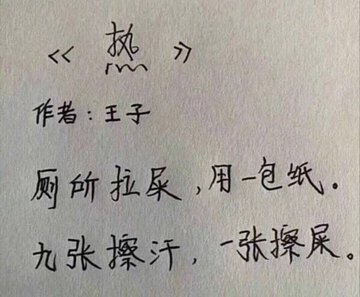 《 热 》
作者：王子
厕所拉屎，用一包纸。
九张擦汗，一张擦屎。